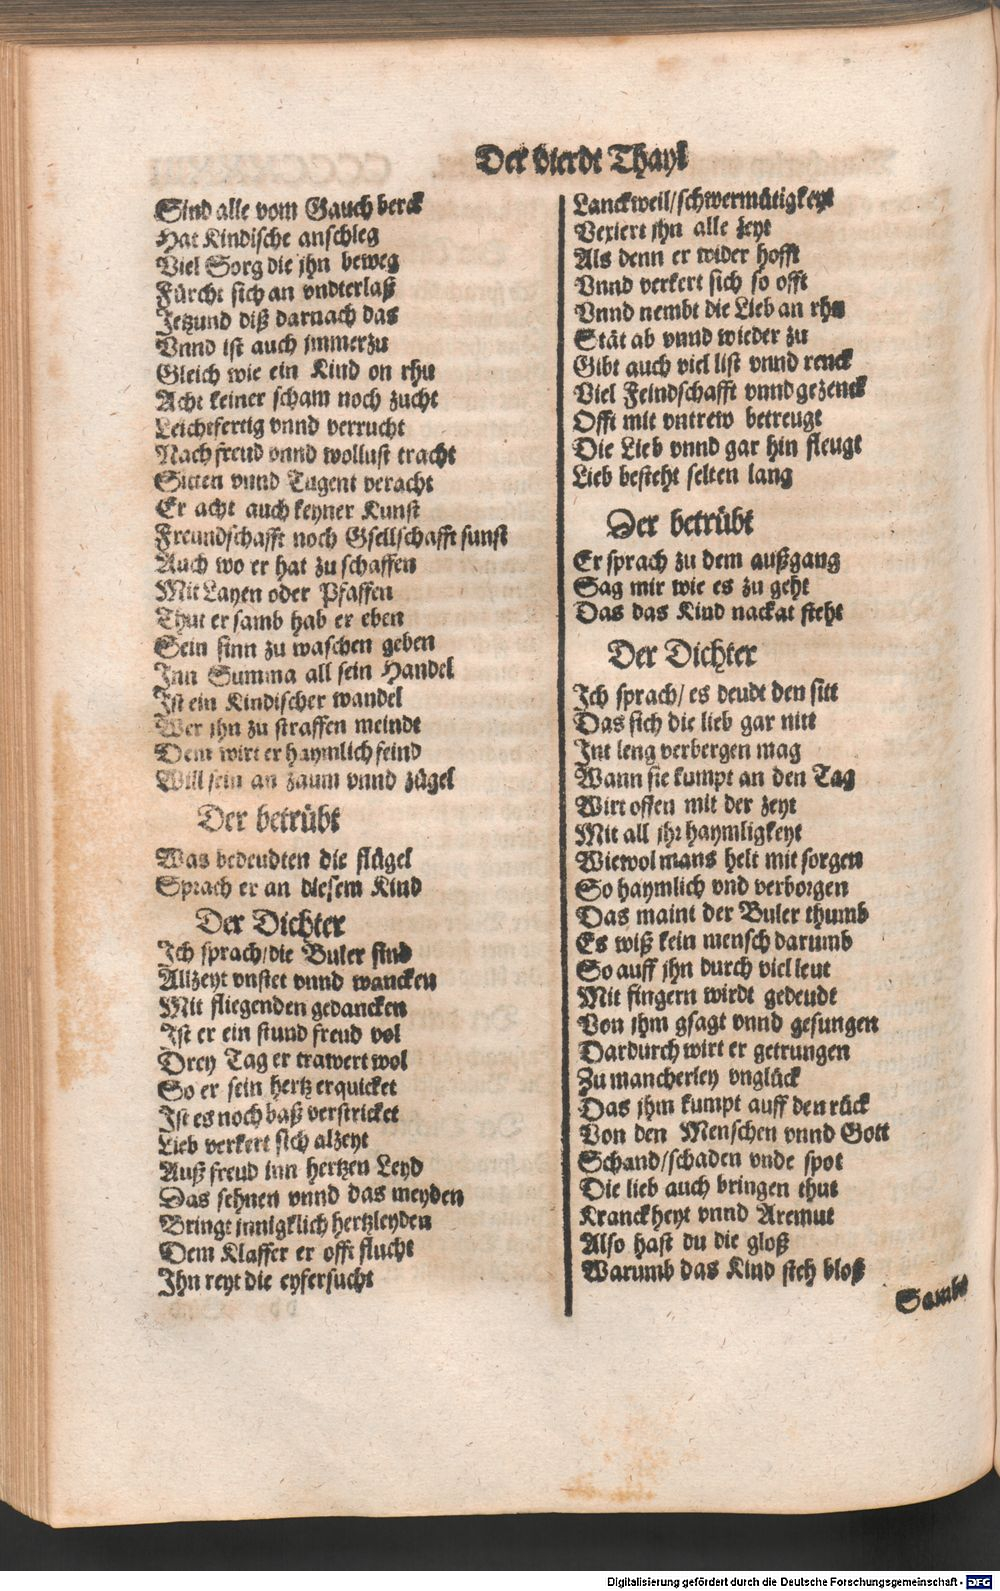 Der vierdt Thayl
Sind alle vom Gauch berck
Hat Kindische anschleg
Viel Sorg die jhn beweg
Fürcht sich an vndterlaß
Jetzund diß darnach das
Vnnd ist auch jmmerzu
Gleich wie ein Kind on rhu
Acht keiner scham noch zucht
Leichtfertig vnnd verrucht
Nach freud vnnd wollust tracht
Sitten vnnd Tugent veracht
Er acht auch keyner Kunst
Freundschafft noch Gsellschafft sunst
Auch wo er hat zu schaffen
Mit Layen oder Pfaffen
Thut er samb hab er eben
Sein sinn zu waschen geben
Inn Summa all sein Handel
Ist ein Kindischer wandel
Wer jhn zu straffen meindt
Dem wirt er haymlich feind
Will sein an zaum vnnd zügel
Der betrübt
Was bedeudten die flügel
Sprach er an diesem Kind
Der Dichter
Ich sprach/die Buler sind
Allzeyt vnstet vnnd wancken
Mit fliegenden gedancken
Ist er ein stund freud vol
Drey Tag er trawert wol
So er sein hertz erquicket
Ist es noch baß verstricket
Lieb verkert sich alzeyt
Auß freud inn hertzen Leyd
Das sehnen vnnd das meyden
Bringt innigklich hertzleyden
Dem Klaffer er offt flucht
Ihn reyt die eyfersucht
Lanckweil/schwermütigkeyt
Vexiert jhn alle zeyt
Als denn er wider hofft
Vnnd verkert sich so offt
Vnnd nembt die Lieb an rhu
Stät ab vnnd wieder zu
Gibt auch viel list vnnd renck
Viel Feindschafft vnnd gezenck
Offt mit vntrew betreugt
Die Lieb vnnd gar hin fleugt
Lieb besteht selten lang
Der betrübt
Er sprach zu dem außgang
Sag mir wie es zu geht
Das das Kind nackat steht
Der Dichter
Ich sprach/ es deudt den sitt
Das sich die lieb gar nitt
Int leng verbergen mag
Wann sie kumpt an den Tag
Wirt offen mit der zeyt
Mit all jhr haymligkeyt
Wiewol mans helt mit sorgen
So haymlich vnd verborgen
Das maint der Buler thumb
Es wiß kein mensch darumb
So auff jhn durch viel leut
Mit fingern wirdt gedeudt
Von jhm gsagt vnnd gesungen
Dardurch wirt er getrungen
Zu mancherley vnglück
Das jhm kumpt auff den rück
Von den Menschen vnnd Gott
Schand/schaden vnde spot
Die lieb auch bringen thut
Kranckheyt vnnd Aremut
Also hast du die gloß
Warumb das Kind steh bloß
Sambt
Digitalisierung gefördert durch die Deutsche Forschungsgemeinschaft - DFG